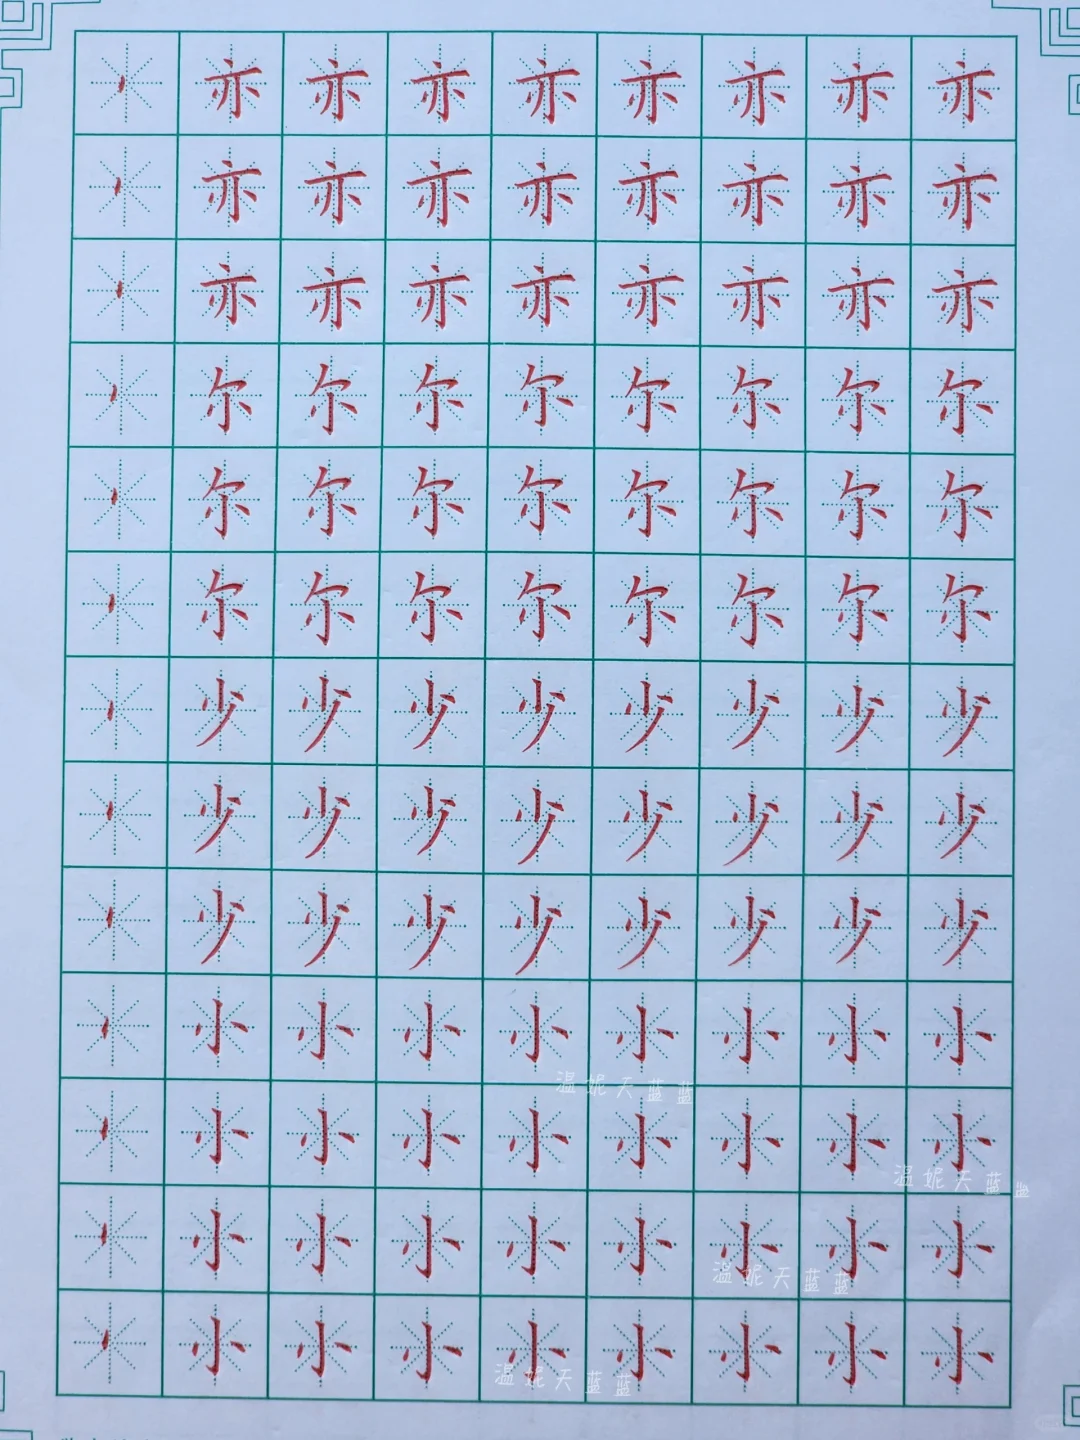 亦 亦 亦 亦 亦 亦 亦 亦
亦 亦 亦 亦 亦 亦 亦 亦
亦 亦 亦 亦 亦 亦 亦 亦
尔 尔 尔 尔 尔 尔 尔 尔
尔 尔 尔 尔 尔 尔 尔 尔
尔 尔 尔 尔 尔 尔 尔 尔
少 少 少 少 少 少 少 少
少 少 少 少 少 少 少 少
少 少 少 少 少 少 少 少
小 小 小 小 小 小 小 小
温妮天蓝蓝
小 小 小 小 小 小 小 小
温妮天蓝蓝
小 小 小 小 小 小 小 小
温妮天蓝蓝
小 小 小 小 小 小 小 小
温妮天蓝蓝